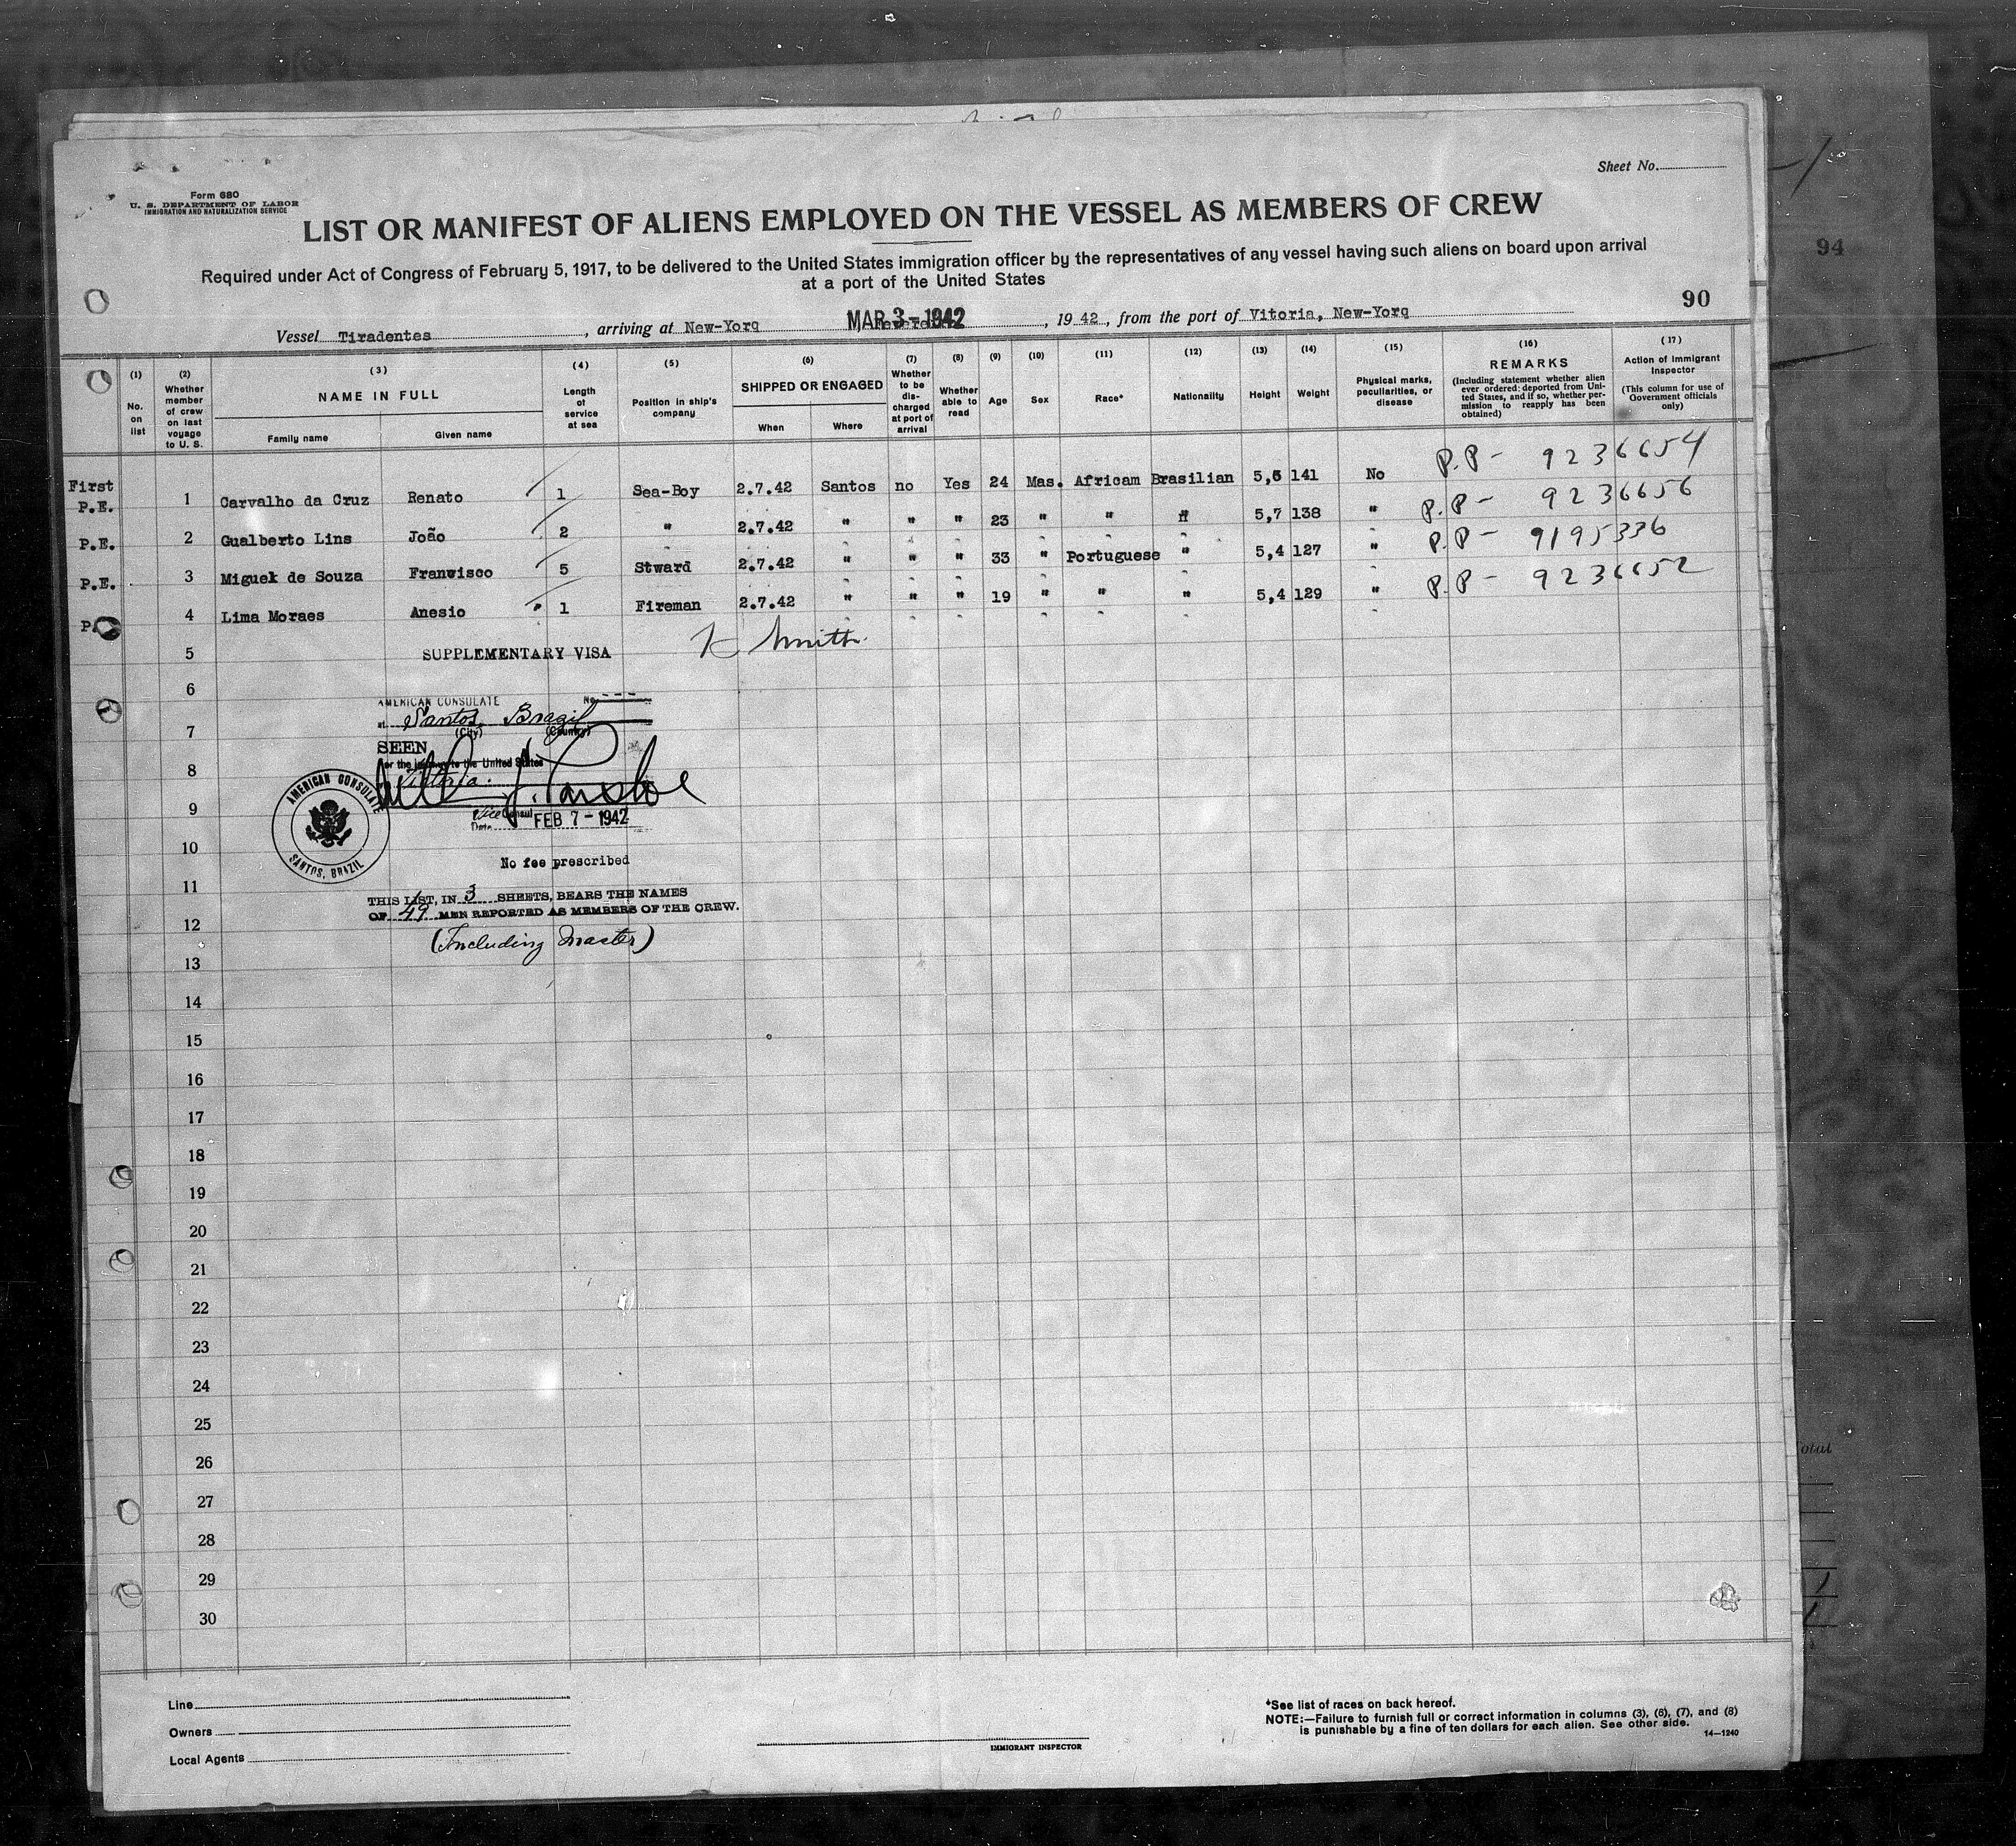 Sheet No.
Form 680
U. S. DEPARTMENT OF LABOR
IMMIGRATION AND NATURALIZATION SERVICE
LIST OR MANIFEST OF ALIENS EMPLOYED ON THE VESSEL AS MEMBERS OF CREW
Required under Act of Congress of February 5, 1917, to be delivered to the United States immigration officer by the representatives of any vessel having such aliens on board upon arrival
at a port of the United States
94
90
Vessel Tiradentes, arriving at New-Yorq MAR 3-1942, 1942, from the port of Vitoria, New-Yorq
(1) No. on list
(2) Whether member of crew on last voyage to U. S.
(3) NAME IN FULL
Family name Given name
(4) Length of service at sea
(5) Position in ship's company
(6) SHIPPED OR ENGAGED
When Where
(7) Whether to be discharged at port of arrival
(8) Whether able to read
(9) Age
(10) Sex
(11) Race*
(12) Nationality
(13) Height
(14) Weight
(15) Physical marks, peculiarities, or disease
(16) REMARKS
(Including statement whether alien ever ordered deported from United States, and if so, whether permission to reapply has been obtained)
(17) Action of Immigrant Inspector
(This column for use of Government officials only)
First
P.E. 1 Carvalho da Cruz Renato 1 Sea-Boy 2.7.42 Santos no Yes 24 Mas. Africam Brasilian 5,5 141 No P.P - 9236654
P.E. 2 Gualberto Lins João 2 " 2.7.42 " " " 23 " " " 5,7 138 " P.P - 9236656
P.E. 3 Miguek de Souza Franwisco 5 Stward 2.7.42 " " " 33 " Portuguese " 5,4 127 " P.P - 9195336
P. 4 Lima Moraes Anesio 1 Fireman 2.7.42 " " " 19 " " " 5,4 129 " P.P - 9236652
5 SUPPLEMENTARY VISA Smith
6
AMERICAN CONSULATE No.
at Santos, Brazil
(City) (Country)
7
SEEN
for the journey to the United States
8
Victoria
AMERICAN CONSULATE
SANTOS, BRAZIL
9
Vice Consul
Date FEB 7-1942
10
No fee prescribed
11
THIS LIST, IN 3 SHEETS, BEARS THE NAMES
OF 49 MEN REPORTED AS MEMBERS OF THE CREW.
12
(Including Master)
13
14
15
16
17
18
19
20
21
22
23
24
25
26
27
28
29
30
otal
Line
Owners
Local Agents
IMMIGRANT INSPECTOR
*See list of races on back hereof.
NOTE:—Failure to furnish full or correct information in columns (3), (6), (7), and (8)
is punishable by a fine of ten dollars for each alien. See other side.
14—1240